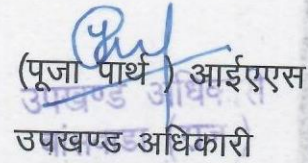 (पूजा पार्थ ) आईएएस
उपखण्ड अधिकारी